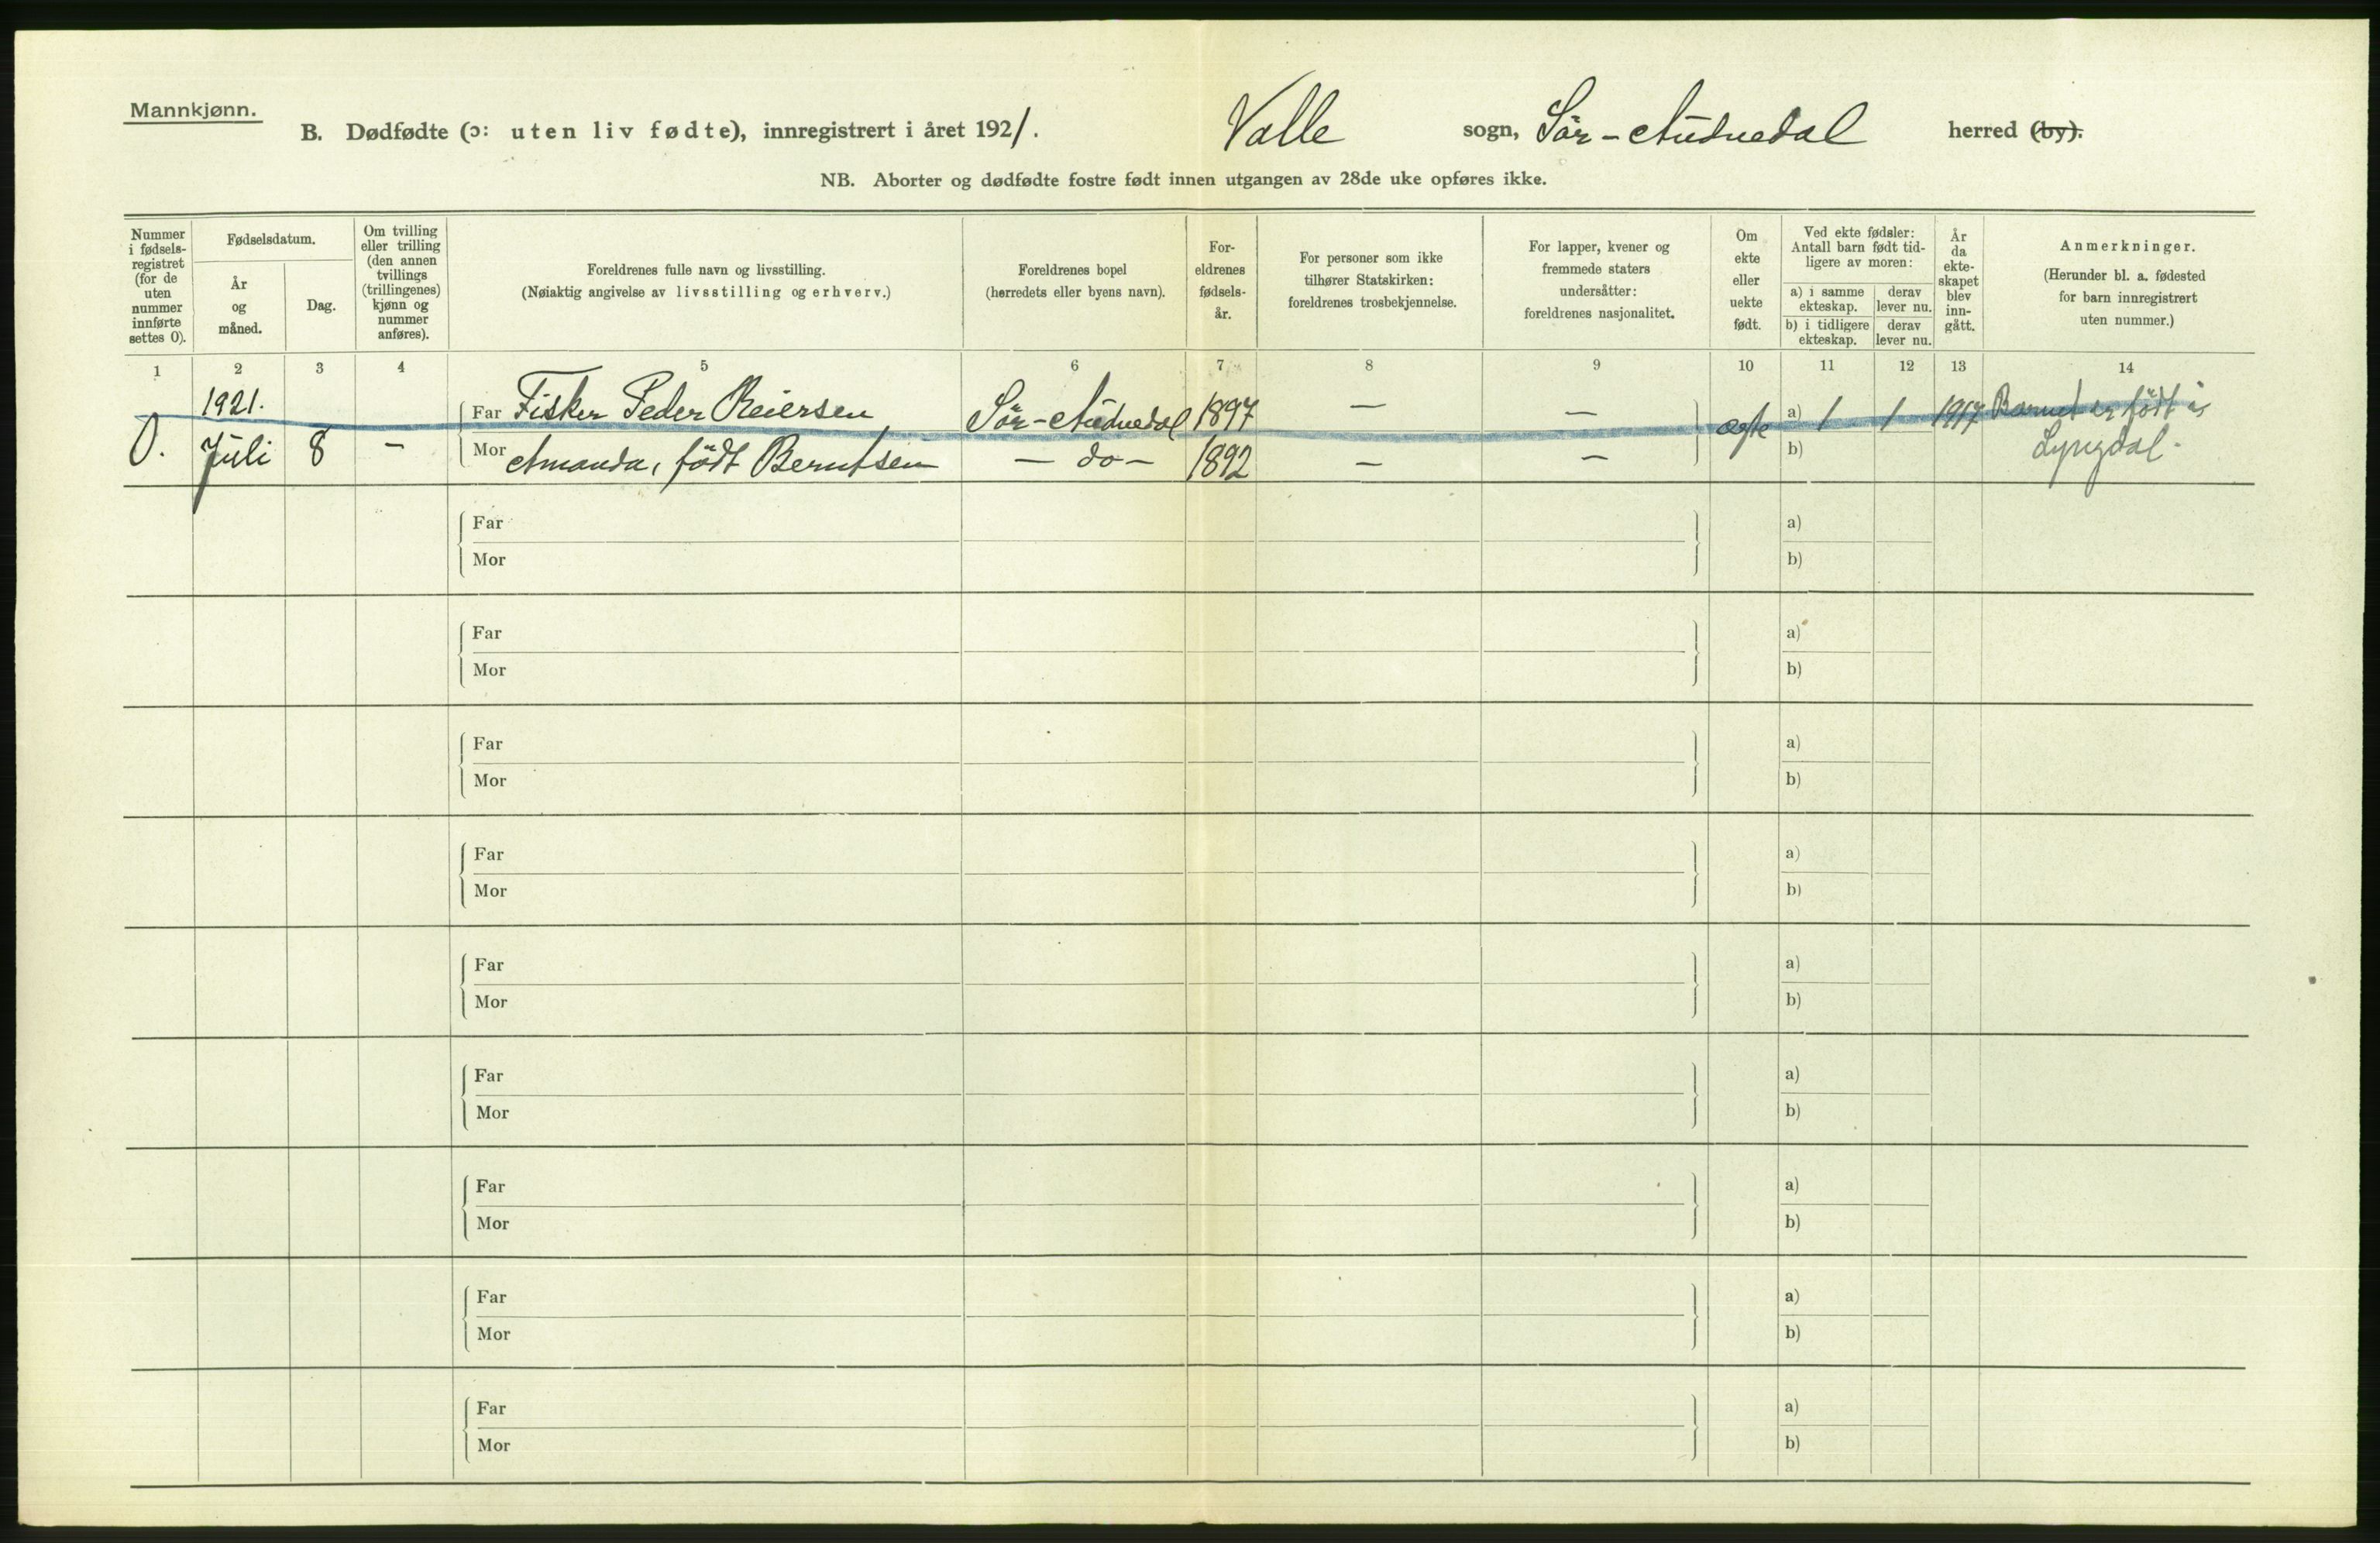 Mannkjønn.
B. Dødfødte (ɔ: uten liv fødte), innregistrert i året 1921. Valle sogn, Sör-Audnedal herred (by).
NB. Aborter og dødfødte fostre født innen utgangen av 28de uke opføres ikke.
Nummer i fødsels-registret (for de uten nummer innførte settes 0).
Fødselsdatum.
År og måned.
Dag.
Om tvilling eller trilling (den annen tvillings (trillingenes) kjønn og nummer anføres).
Foreldrenes fulle navn og livsstilling.
(Nøiaktig angivelse av livsstilling og erhverv.)
Foreldrenes bopel
(herredets eller byens navn).
For-eldrenes fødsels-år.
For personer som ikke tilhører Statskirken: foreldrenes trosbekjennelse.
For lapper, kvener og fremmede staters undersåtter: foreldrenes nasjonalitet.
Om ekte eller uekte født.
Ved ekte fødsler: Antall barn født tid-ligere av moren:
a) i samme ekteskap. derav lever nu.
b) i tidligere ekteskap. derav lever nu.
År da ekte-skapet blev inn-gått.
Anmerkninger.
(Herunder bl. a. fødested for barn innregistrert uten nummer.)
1 2 3 4 5 6 7 8 9 10 11 12 13 14
1921. Far Fisker Peder Reiersen Sör-Audnedal 1897 — — a) 1 1 1917 Barnet er födt i
0. Juli 8 — Mor Amanda, födt Berntsen — do — 1892 — — ægte b) Lyngdal.
Far a)
Mor b)
Far a)
Mor b)
Far a)
Mor b)
Far a)
Mor b)
Far a)
Mor b)
Far a)
Mor b)
Far a)
Mor b)
Far a)
Mor b)
Far a)
Mor b)